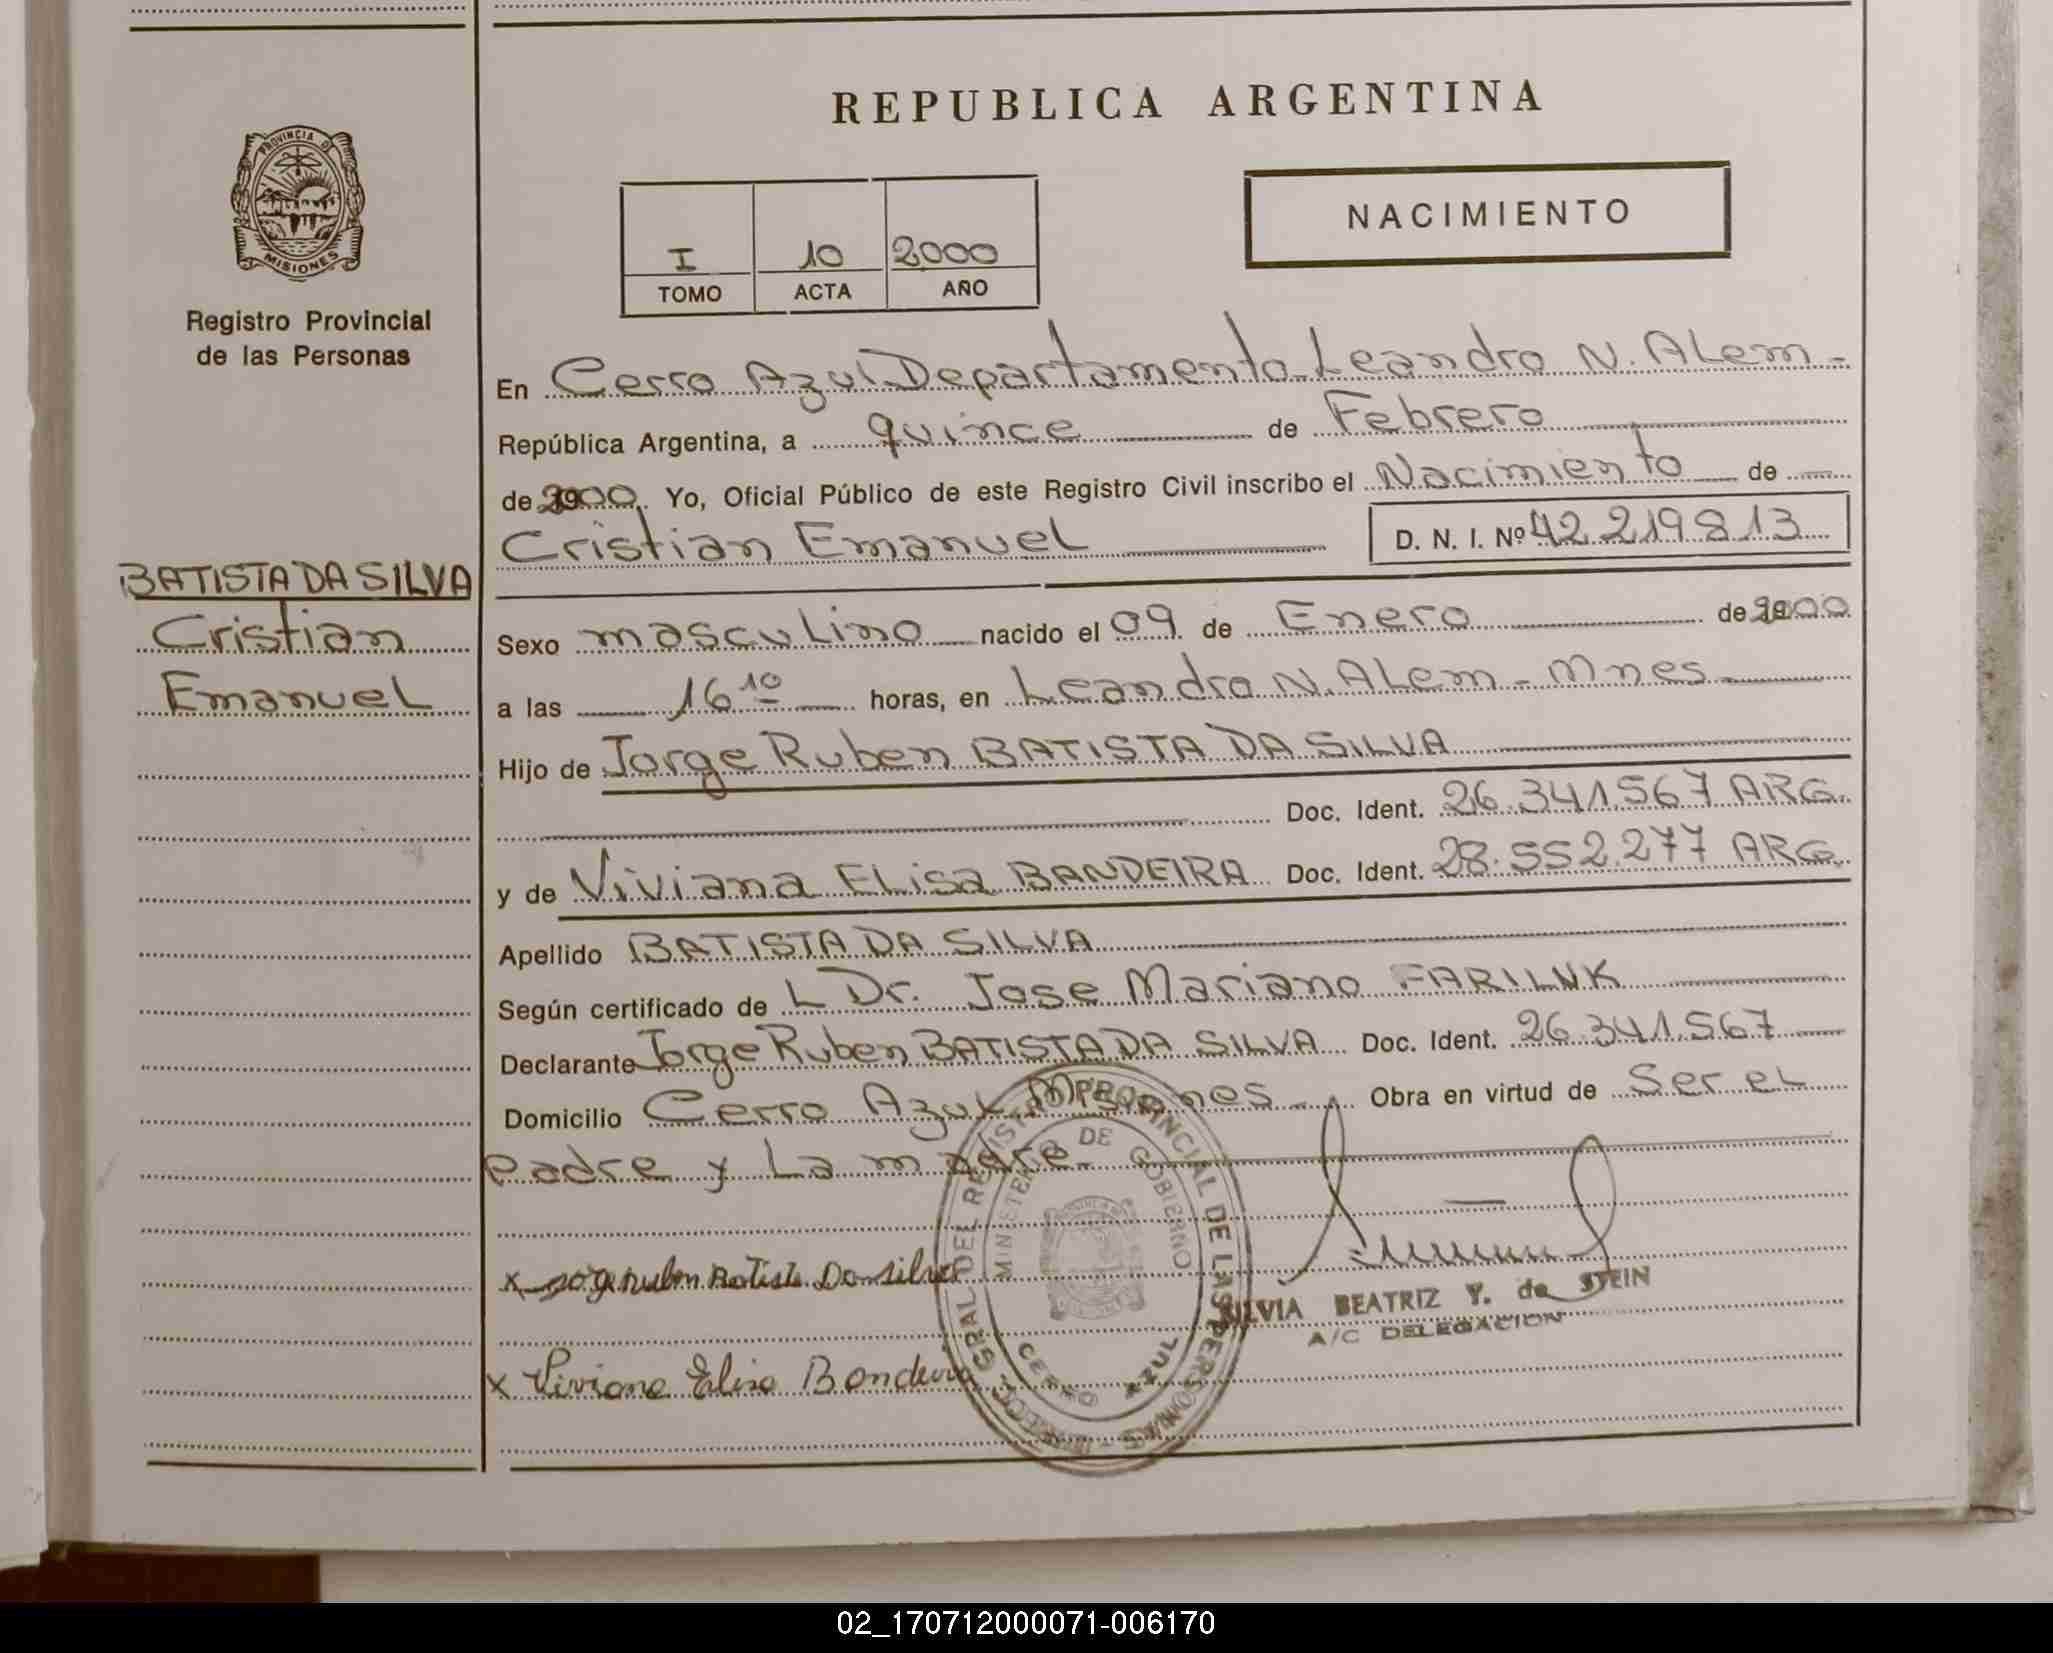 REPUBLICA ARGENTINA
PROVINCIA DE
MISIONES
Registro Provincial
de las Personas
I 10 2000
TOMO ACTA AÑO
NACIMIENTO
En Cerro Azul Departamento Leandro N. ALem-
República Argentina, a quince de Febrero
de 2000. Yo, Oficial Público de este Registro Civil inscribo el Nacimiento de
Cristian EmanueL D. N. I. Nº 42.219.813
BATISTA DA SILVA
Cristian
EmanueL
Sexo mascuLino nacido el 09 de Enero de 2000
a las 16 10 horas, en Leandro N. ALem - Mnes
Hijo de Jorge Ruben BATISTA DA SILVA
Doc. Ident. 26.341.567 ARG.
y de Viviana ELisa BANDEIRA Doc. Ident. 28.552.277 ARG.
Apellido BATISTA DA SILVA
Según certificado de L Dr. Jose Mariano FARILNK
Declarante Jorge Ruben BATISTA DA SILVA Doc. Ident. 26.341.567
Domicilio Cerro Azul Misiones Obra en virtud de Ser eL
Padre y La madre.
MINISTERIO DE GOBIERNO
CERRO AZUL
x Jorge Ruben Batista Da silva
SILVIA BEATRIZ Y. de STEIN
A/C DELEGACION
x Viviana Elisa Bandeira
02_170712000071-006170